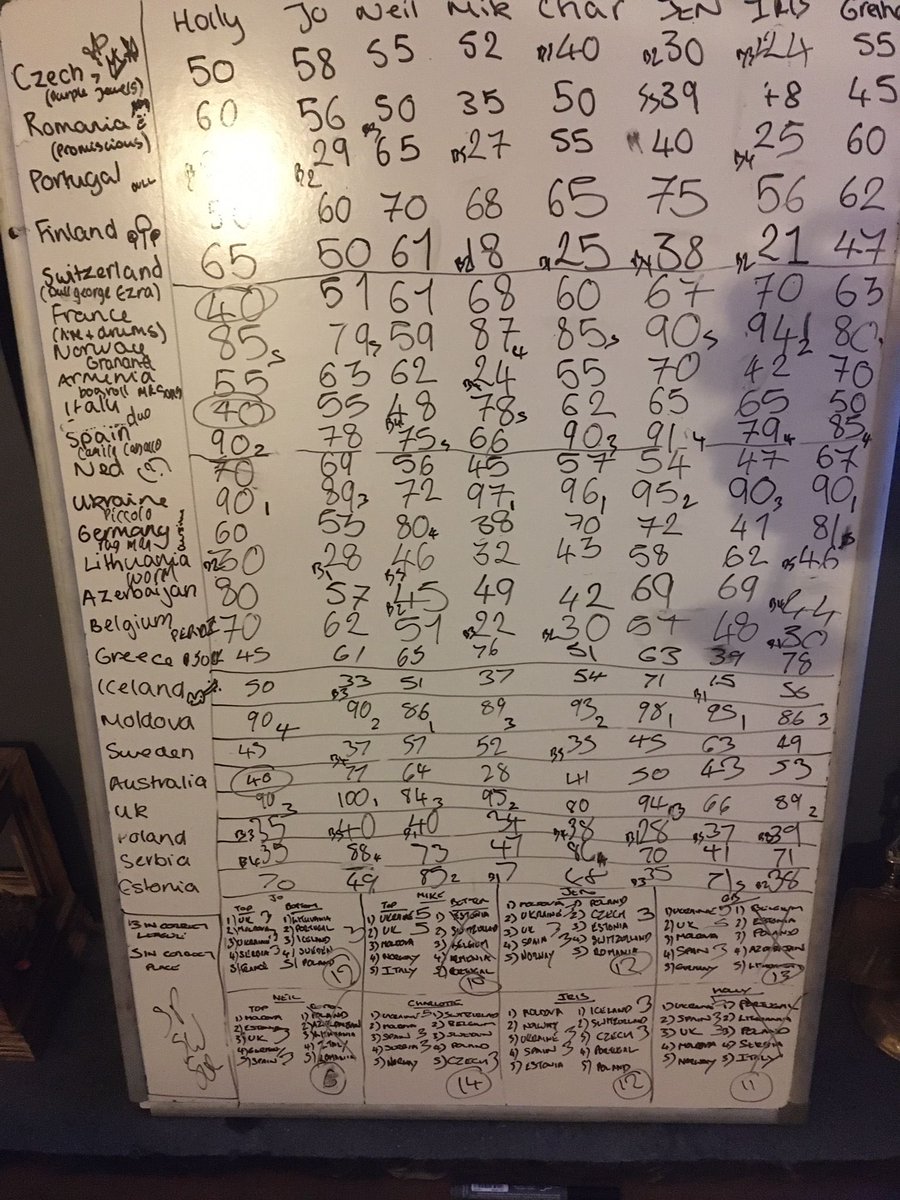 Holly Jo Neil Mike Char JEN IRIS
Czech 50 58 55 52 40 30 24 55
(purple jewels)
Romania 60 56 50 35 50 39 45
(Promiscious)
Portugal 29 65 27 55 40 25 60
NULL
Finland 60 70 68 65 75 56 62
Switzerland 65 50 61 18 25 38 21 47
(Dull george Ezra)
France 40 51 61 68 60 67 70 63
Norway 85 79 59 87 85 90 94 80
Armenia 55 63 62 24 55 70 42 70
Italy 40 55 48 78 62 65 65 50
duo
Spain 90 2 78 75 5 66 90 3 91 4 79 4 85 4
Ned 70 69 56 45 57 54 47 67
Ukraine 90 1 89 3 72 97 1 96 1 95 2 90 3 90 1
Piccolo
Germany 60 53 80 4 38 70 72 41 81
Lithuania 30 28 46 32 43 58 62 46
worm
Azerbaijan 80 57 45 49 42 69 69 44
Belgium 70 62 51 22 30 57 48 30
Greece 45 61 65 76 51 63 39 78
Iceland 50 33 51 37 54 71 15 56
Moldova 90 4 90 2 86 1 89 3 93 2 98 1 95 1 86 3
Sweden 45 37 57 52 35 45 63 49
Australia 40 71 64 28 41 50 43 53
UK 90 3 100 1 84 3 95 2 80 94 66 89 2
Poland 35 40 40 34 38 28 37 39
Serbia 35 88 4 73 47 70 41 71
Estonia 70 49 85 2 35 71 5 38
3 IN CORRECT
5 IN CORRECT
PLACE
JO
TOP BOTTOM
1) UK 3 1) LITHUANIA
2) MOLDOVA 2) PORTUGAL
3) UKRAINE 3) ICELAND
4) SERBIA 4) SWEDEN
5) 5) POLAND
MIKE
TOP BOTTOM
1) UKRAINE 5 1) ESTONIA
2) UK 5 2) SWITZERLAND
3) MOLDOVA 3) BELGIUM
4) NORWAY 4) ARMENIA
5) ITALY 5) PORTUGAL
JEN
1) MOLDOVA 1) POLAND
2) UKRAINE 2) CZECH 3
3) UK 3) ESTONIA
4) SPAIN 4) SWITZERLAND
5) NORWAY 5) ROMANIA
12
1) UKRAINE 1) BELGIUM
2) UK 2) ESTONIA
3) MOLDOVA 3) POLAND
4) SPAIN 4) AZERBAIJAN
5) GERMANY 5) LITHUANIA
13
NEIL
TOP
1) MOLDOVA 1) POLAND
2) ESTONIA 2) AZERBAIJAN
3) UK 3) LITHUANIA
4) GERMANY 4) ITALY
5) SPAIN 5) ROMANIA
CHARLOTTE
1) UKRAINE 1) SWITZERLAND
2) MOLDOVA 2) BELGIUM
3) SPAIN 3
4) 4) POLAND
5) NORWAY 5) CZECH 3
14
IRIS
1) MOLDOVA 1) ICELAND 3
2) NORWAY 2) SWITZERLAND
3) UKRAINE 3) CZECH
4) SPAIN 4) PORTUGAL
5) ESTONIA 5) POLAND
12
HOLLY
1) UKRAINE 1) PORTUGAL
2) SPAIN 2) LITHUANIA
3) UK 3) POLAND
4) MOLDOVA 4) SERBIA
5) NORWAY 5) ITALY
11